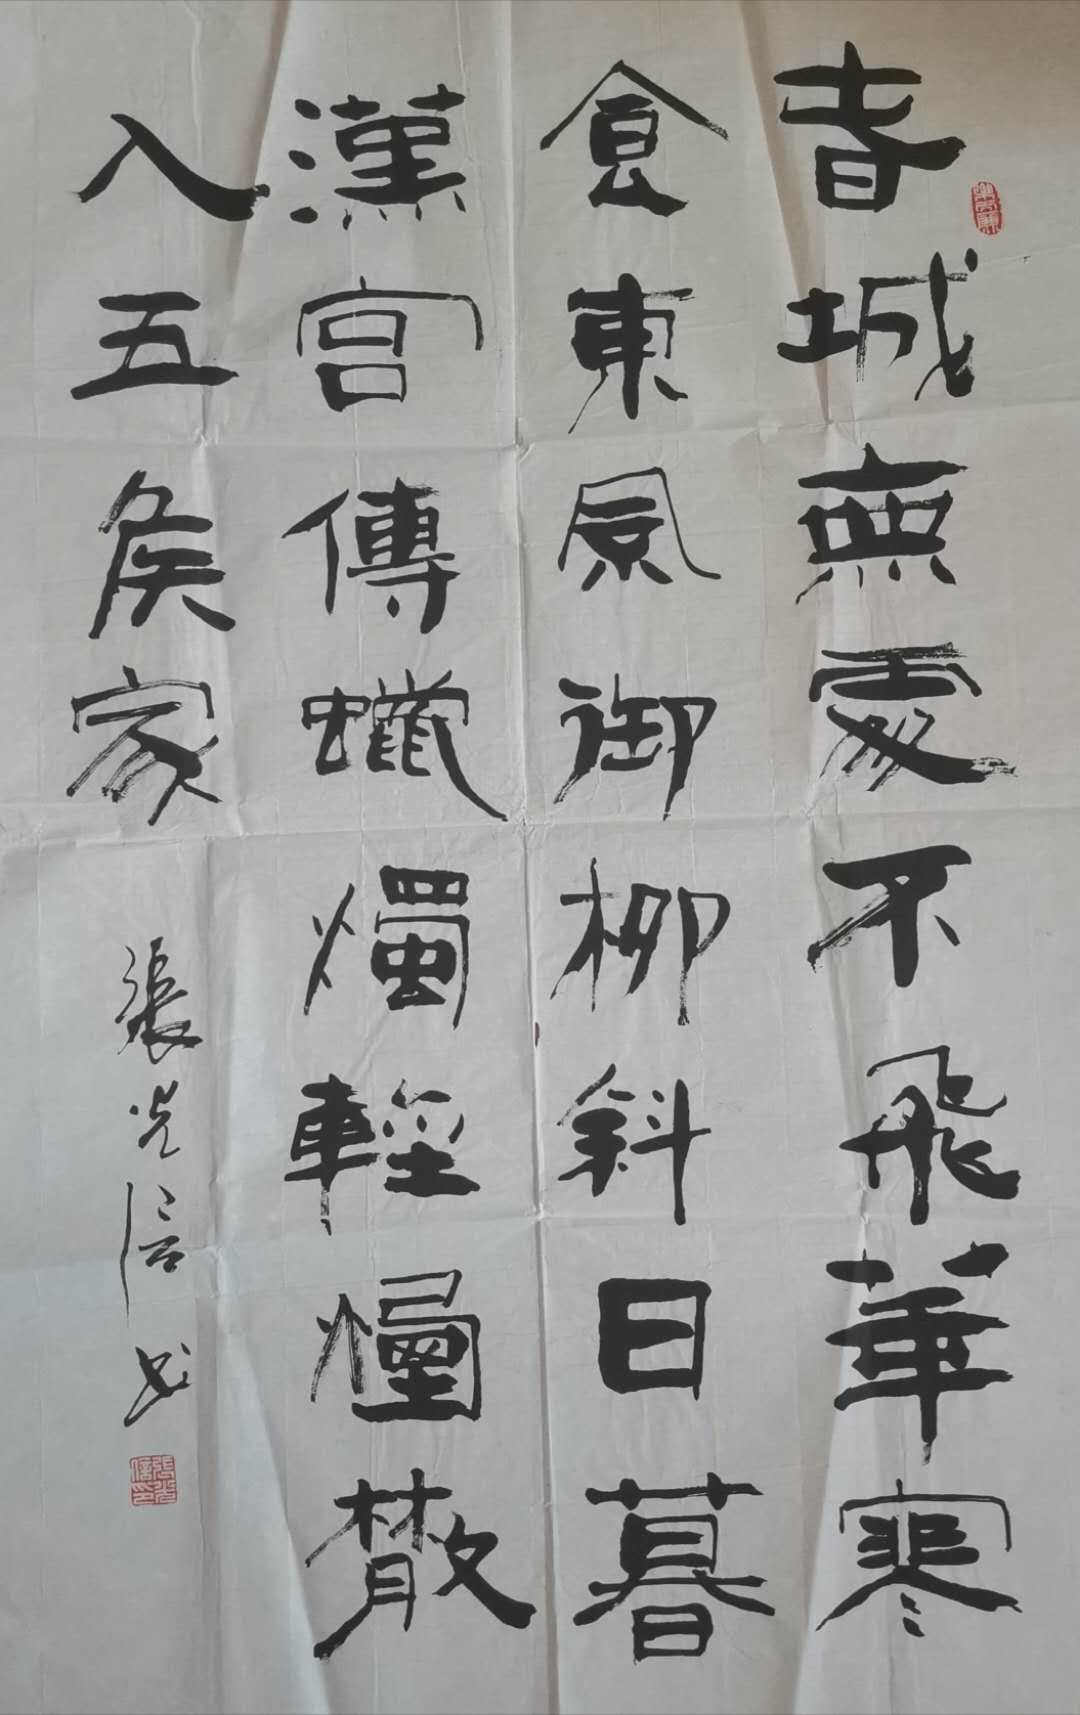 春城無處不飛華寒
食東風御柳斜日暮
漢宮傳蠟燭輕煙散
入五侯家
張光信书
張光信印